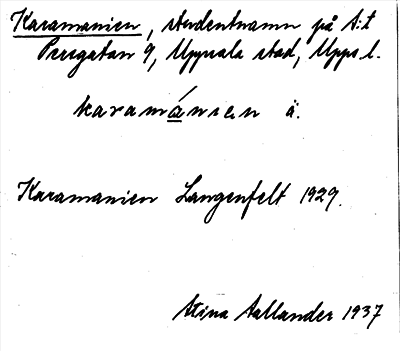 Karamanien, studentnamn på S:t
Persgatan 9, Uppsala stad, Upps.l.
karamánien ä.
Karamanien Langenfelt 1929.
Stina Aallander 1937